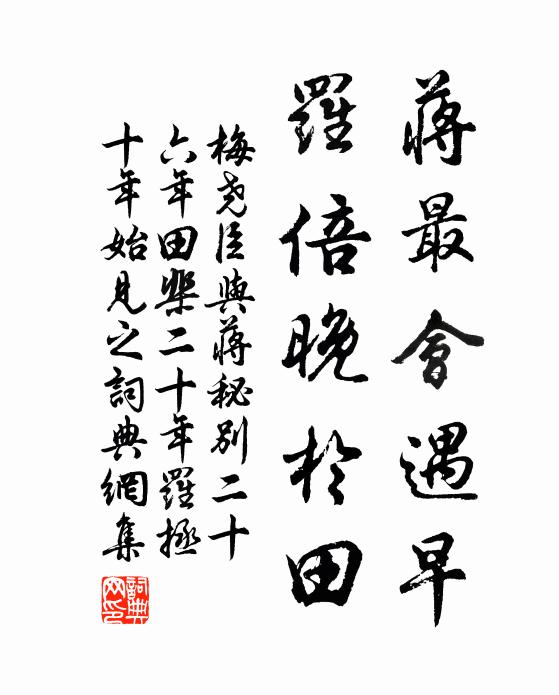 蔣最會遇早
羅倍晚於田
梅堯臣與蔣秘別二十
六年田棐二十年羅拯
十年始見之詞典網集
詞典網印